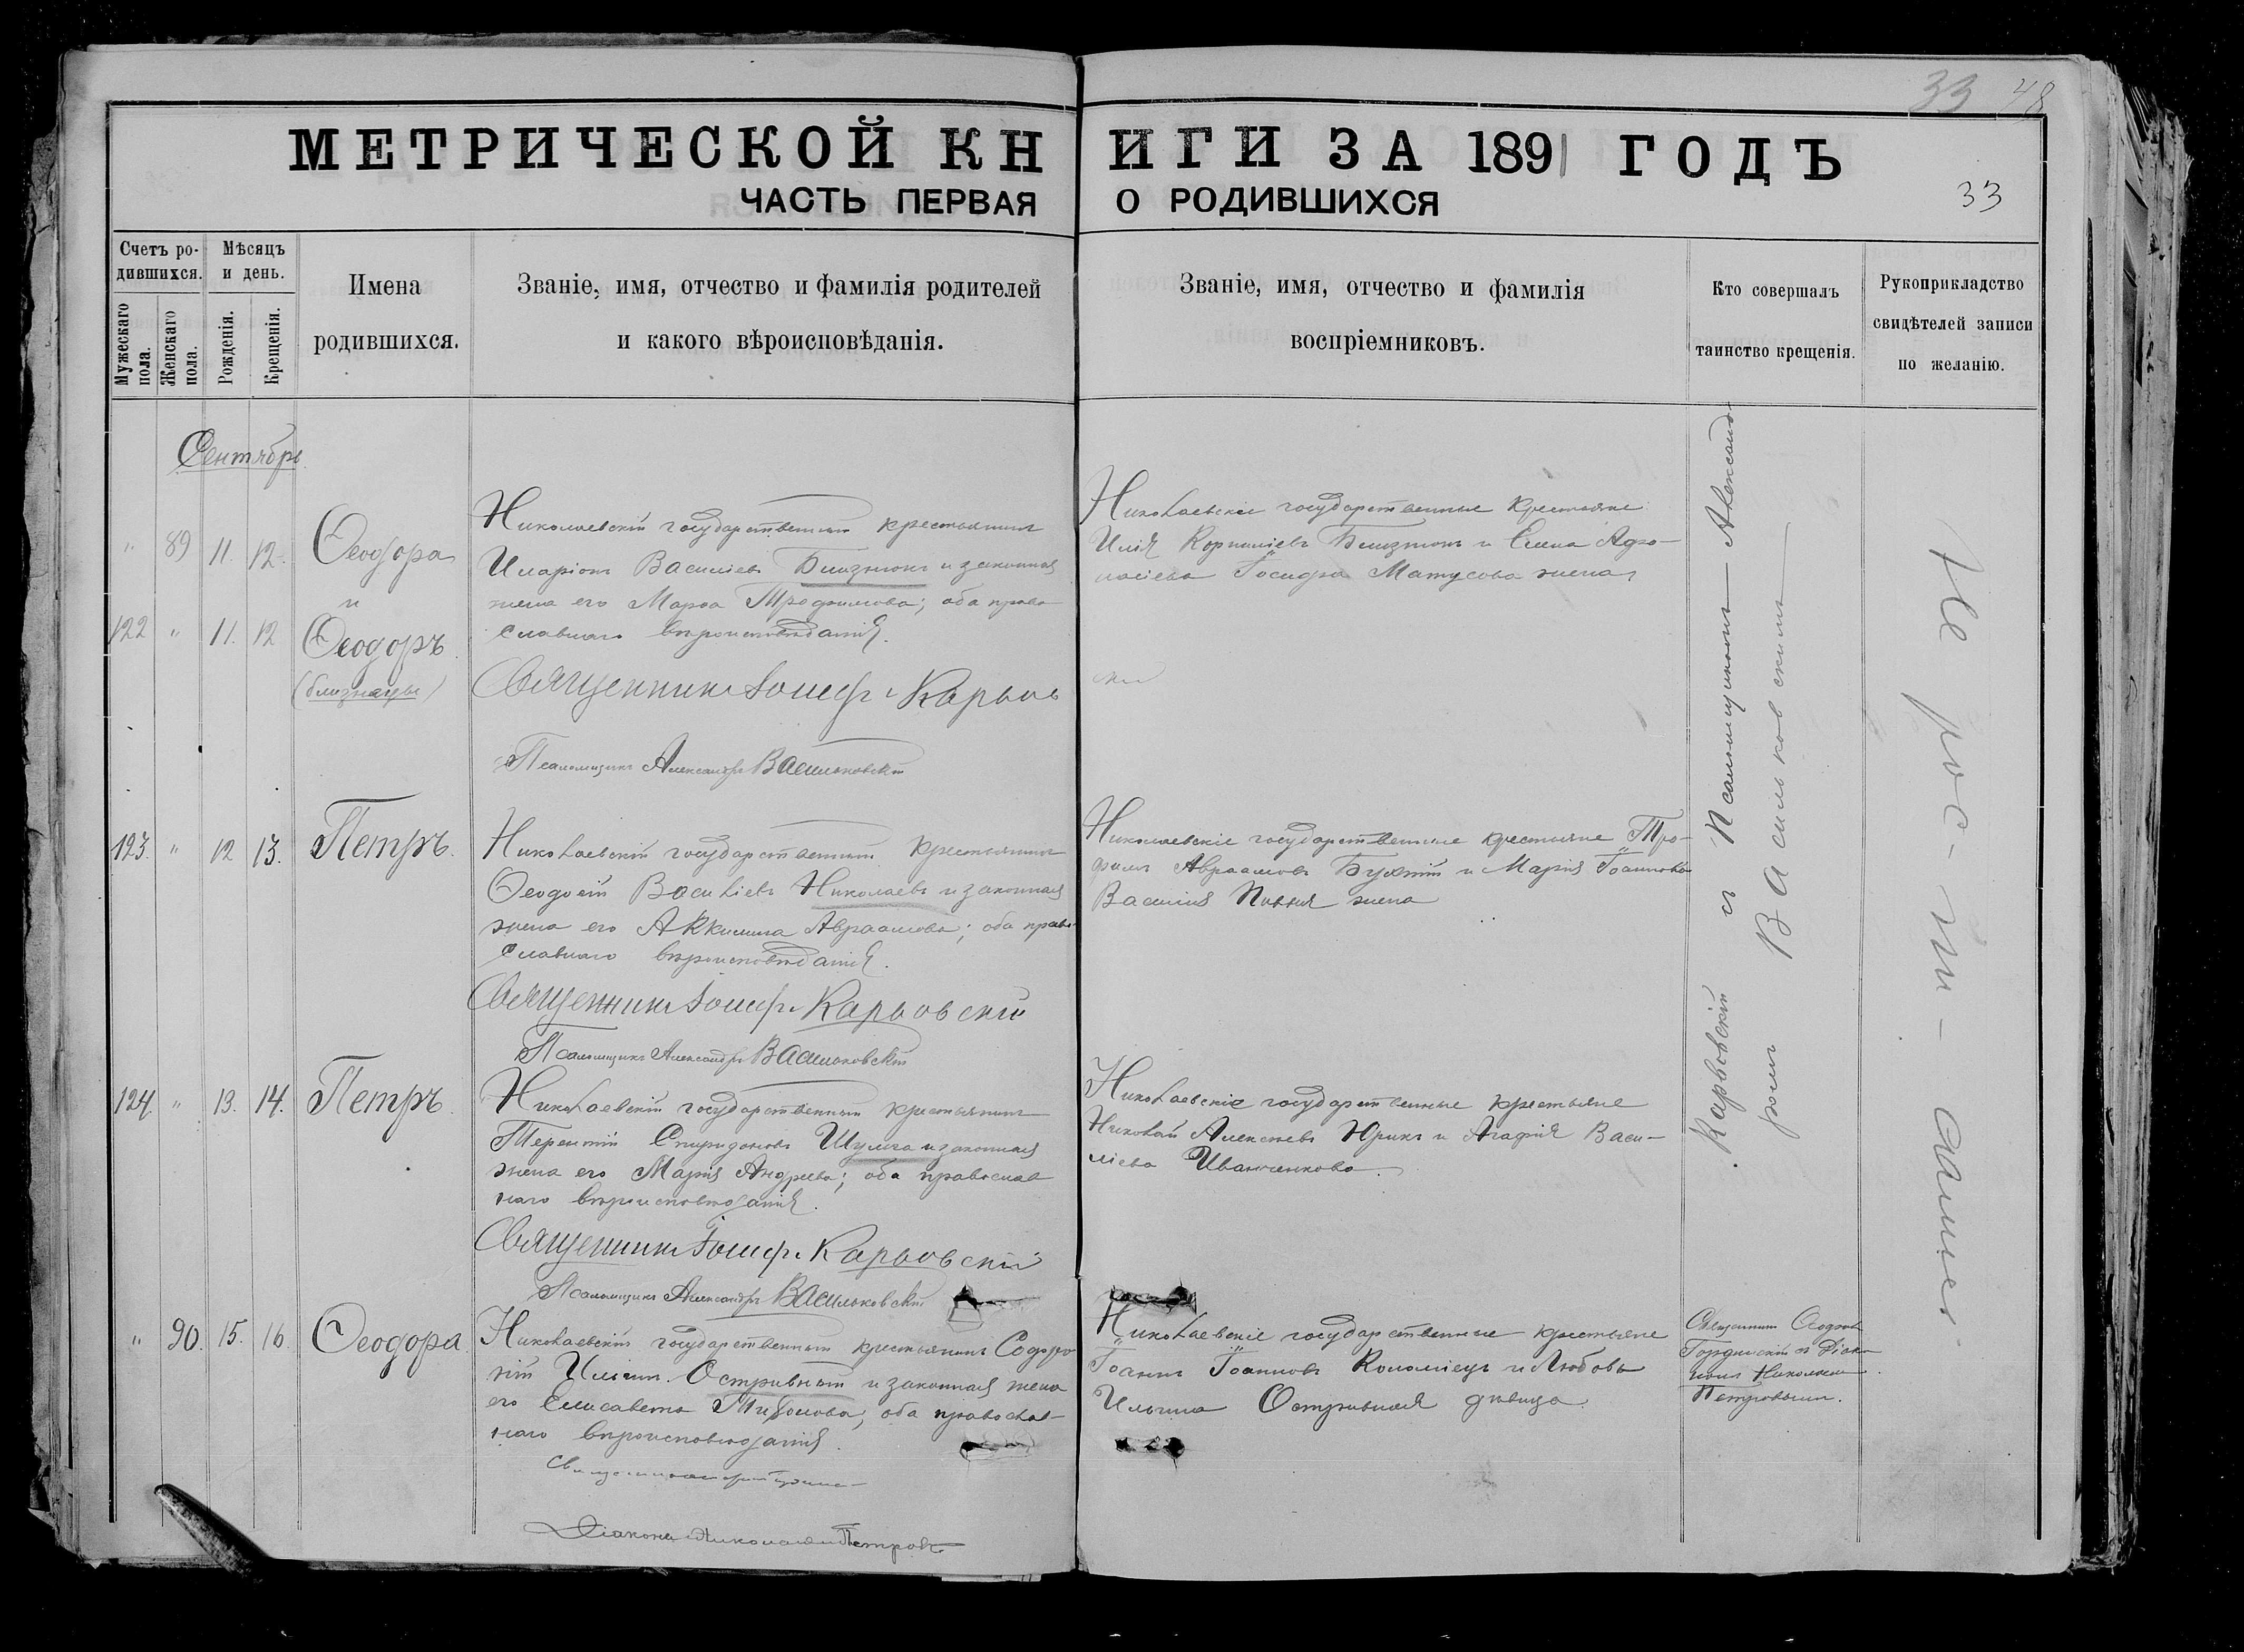 33 48
МЕТРИЧЕСКОЙ КНИГИ ЗА 1891 ГОДЪ
ЧАСТЬ ПЕРВАЯ О РОДИВШИХСЯ
33
Счетъ родившихся.
Мужескаго пола.
Женскаго пола.
Мѣсяцъ и день.
Рожденія.
Крещенія.
Имена
родившихся.
Званіе, имя, отчество и фамилія родителей
и какого вѣроисповѣданія.
Званіе, имя, отчество и фамилія
воспріемниковъ.
Кто совершалъ
таинство крещенія.
Рукоприкладство
свидѣтелей записи
по желанію.
Сентябрь
" 89 11. 12. Ѳеодора
и
122 " 11. 12 Ѳеодоръ
(близнецы)
Николаевскій государственный крестьянинъ
Иларіонъ Василіевъ Близнюкъ и законная
жена его Марѳа Трофимова; оба право
славнаго вѣроисповѣданія.
Священникъ Іосифъ Карьов
скій
Псаломщикъ Александръ Васильковскій
Николаевскіе государственные крестьяне
Илія Корниліевъ Близнюкъ и Елена
Матусова жена
123. " 12 13. Петръ.
Николаевскій государственный крестьянинъ
Ѳеодосій Василіевъ Николаевъ и законная
жена его Акилина Авраамова; оба право
славнаго вѣроисповѣданія.
Священникъ Іосифъ Карьовскій
Псаломщикъ Александръ Васильковскій
Николаевскіе государственные крестьяне Тро-
фимъ Авраамовъ и Марія Іоаннова
Василія жена
124. " 13. 14. Петръ.
Николаевскій государственный крестьянинъ
Терентій Спиридоновъ Шульга и законная
жена его Марія Андреева; оба православ
наго вѣроисповѣданія.
Священникъ Іосифъ Карьовскій
Псаломщикъ Александръ Васильковскій
Николаевскіе государственные крестьяне
Николай Алексѣевъ Юрикъ и Агафія Васи-
ліева Иванченкова.
" 90. 15. 16. Ѳеодора
Николаевскій государственный крестьянинъ Софро
ній Ильинъ Остривный и законная жена
его Елисавета оба православ-
наго вѣроисповѣданія.
Діаконъ Николай Петровъ
Николаевскіе государственные крестьяне
Іоаннъ Іоанновъ Коломіецъ и Любовь
Ильина Остривная дѣвица
Карьовскій съ Псаломщикомъ Александ
ромъ Васильковскимъ
Священникъ
Гордінскій съ Діако
номъ Николаемъ
Петровымъ.